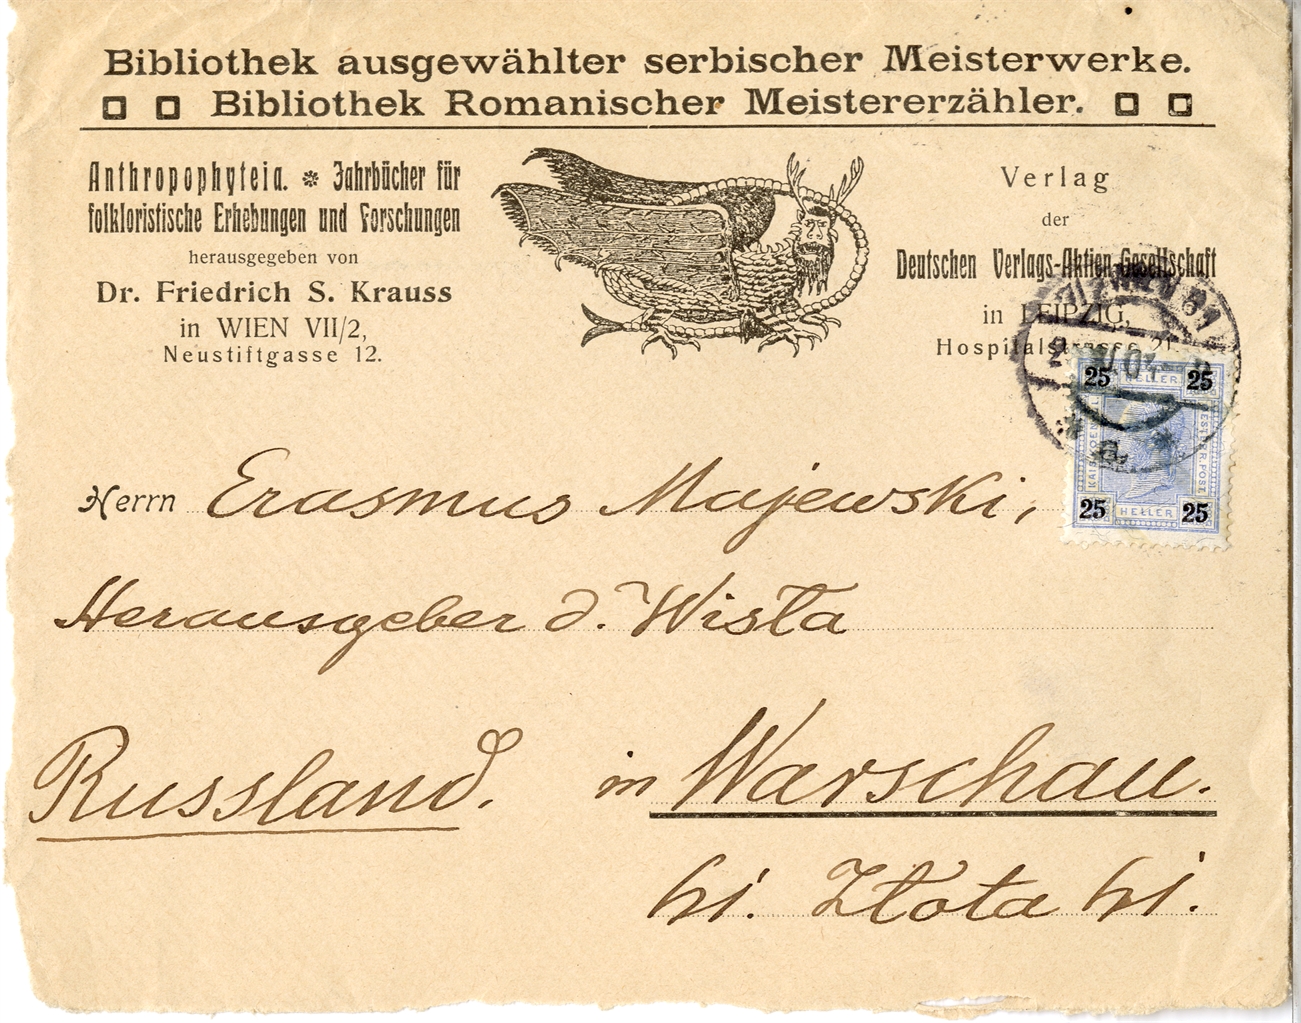 Bibliothek ausgewählter serbischer Meisterwerke.
Bibliothek Romanischer Meistererzähler.
Anthropophyteia. * Jahrbücher für
folkloristische Erhebungen und Forschungen
herausgegeben von
Dr. Friedrich S. Krauss
in WIEN VII/2,
Neustiftgasse 12.
Verlag
der
Deutschen Verlags-Aktien-Gesellschaft
in LEIPZIG,
Hospitalstrasse 21.
25 HELLER 25
25 HELLER 25
Herrn Erasmus Majewski,
Herausgeber d. Wisła
Russland. in Warschau.
Złota